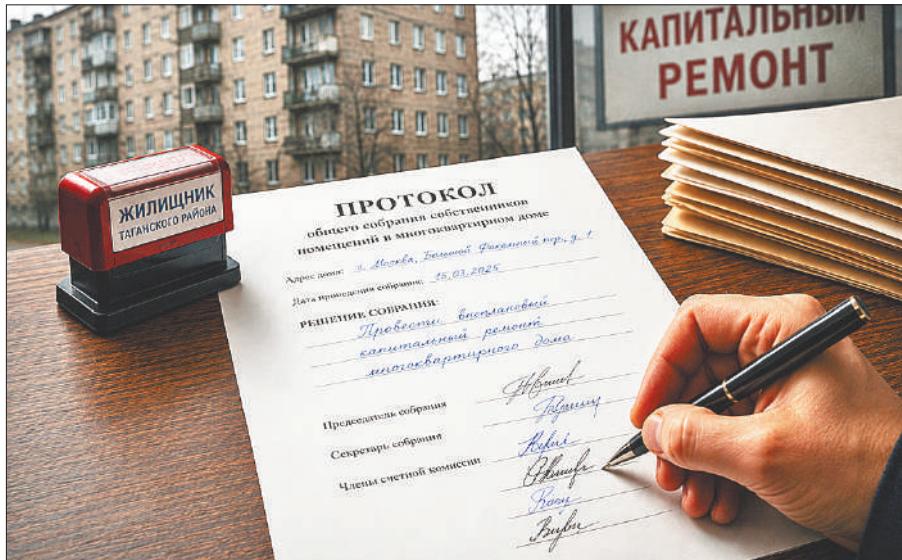 КАПИТАЛЬНЫЙ
РЕМОНТ
ЖИЛИЩНИК
ТАГАНСКОГО РАЙОНА
ПРОТОКОЛ
общего собрания собственников
помещений в многоквартирном доме
Адрес дома: г. Москва, Большой Факельный пер., д. 1
Дата проведения собрания: 15.03.2025
РЕШЕНИЕ СОБРАНИЯ:
Провести внеплановый
капитальный ремонт
многоквартирного дома
Председатель собрания
Секретарь собрания
Члены счетной комиссии